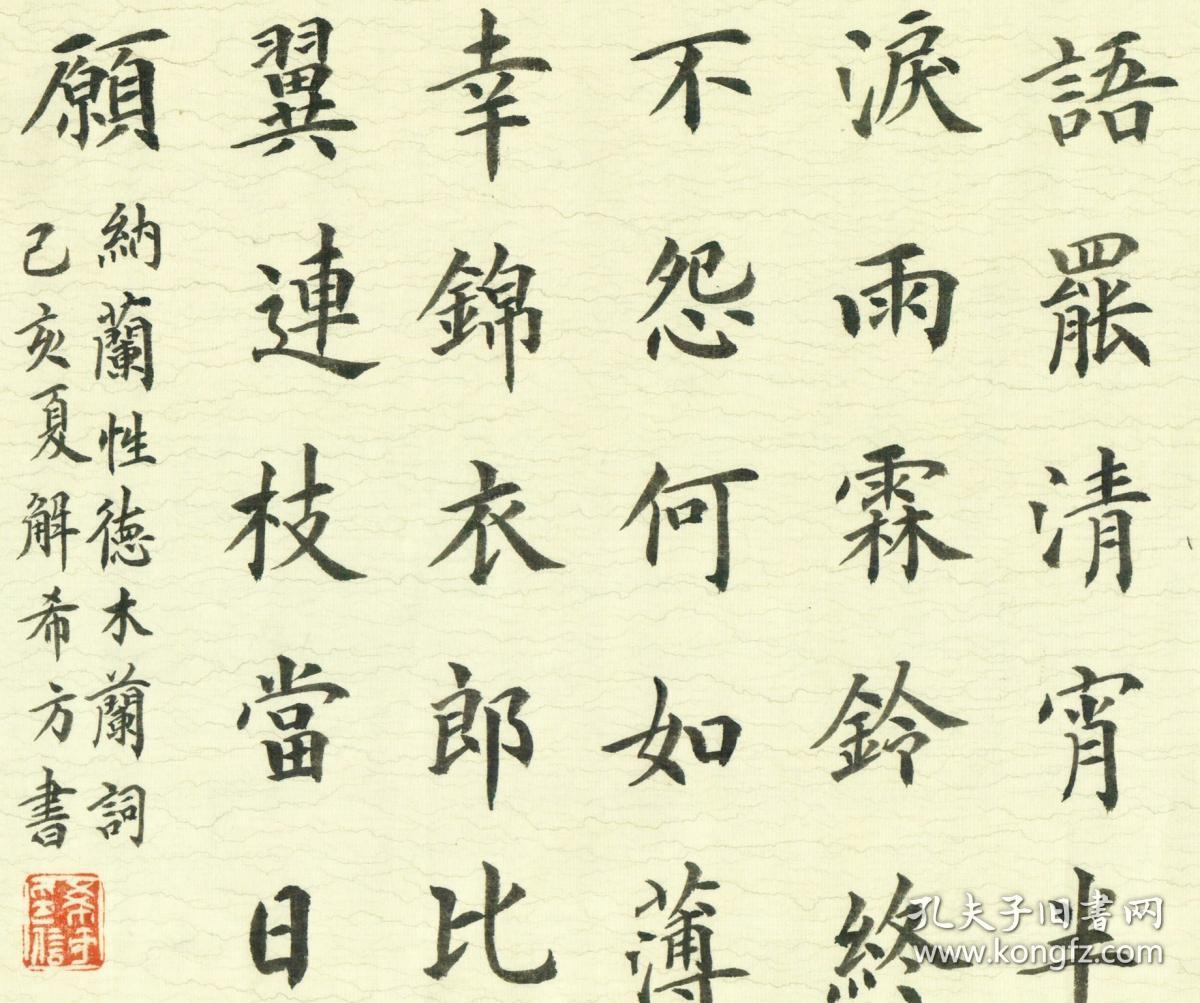 語罷清宵半
淚雨霖鈴終
不怨何如薄
幸錦衣郎比
翼連枝當日
願
納蘭性德木蘭詞
己亥夏解希方書
孔夫子旧書网
www.kongfz.com